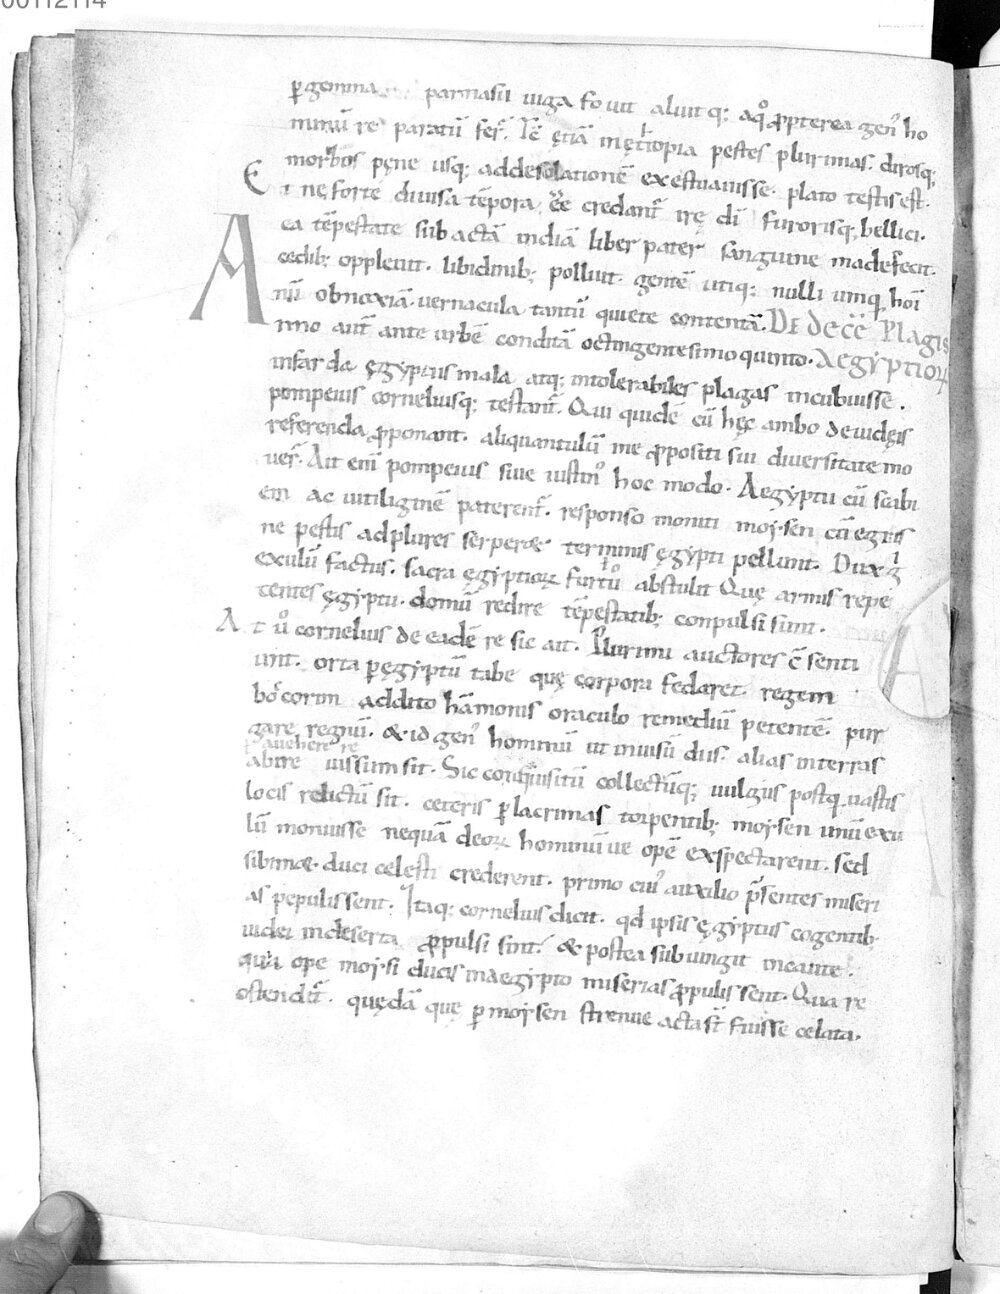 00112114
p gemina parnasu iuga fouit aluitq; aqͦ ꝓpterea gen᾽ ho
minū re paratū fert᾽. Tc̄ etiā in ętiopia pestes plurimas. dirosq;
morbos pęne usq; ad desolationē exestuauisse. plato testis est.
Et ne forte diuisa tēpora eē credant᾽ irę dī furorisq, bellici.
ea tēpestate subactā indiā liber pater sanguine madefecit.
cedib; oppleuit. libidinib; polluit. gentē utiq; nulli umq, hoī
nū obnoxiā. uernacula tantū quiete contentā. DE decē Plagis
Anno aut᾽ ante urbē conditā octingentesimo quinto. Aegyptioꝝ
infanda ęgyptus mala atq; intolerabiles plagas incubuisse.
pompeius corneliusq; testant᾽. Qui quidē cū hęc ambo de iudęis
referenda ꝓponant. aliquantulū me ꝓpositi sui diuersitate mo
uer᾽. Ait enī pompeius siue iustin᾽ hoc modo. Aegyptii cū scabi
em ac uitiliginē paterent᾽. responso moniti moysen cū egris
ne pestis ad plures serperet terminis ęgypti pellunt. Dux gͥ
exulū factus. sacra ęgyptioꝝ furto abstulit Quę armis repe
tentes ęgyptii. domū redire tēpestatib; conpulsi sunt.
At ůo cornelius de eadē re sic ait. Plurimi auctores c̄senti
unt. orta p ęgyptū tabe quę corpora fedaret. regem
bocorim addito hāmonis oraculo remediū petentē. pur
gare regnū. & id gen᾽ hominū ut inuisū diis. alias in terras
auehere
abire iussum sit. Sic conquisitū collectūq; uulgus postq, uastis
locis relictū sit. ceteris p lacrimas torpentib; moysen unū exu
lū monuisse nequā deoꝝ hominū ue opē exspectarent. sed
sibimæ. duci celesti crederent. primo cui᾽ auxilio p̄sentes miseri
as pepulissent. Itaq; cornelius dicit. qd ipsis ęgyptiis cogentib;
iudei in deserta ꝓpulsi sint. & postea subiungit incaute.
qua ope moysi ducis in aegypto miserias ꝓpulissent. Qua re
ostendit᾽. quędā quę p moysen strenue acta st̄ fuisse celata.